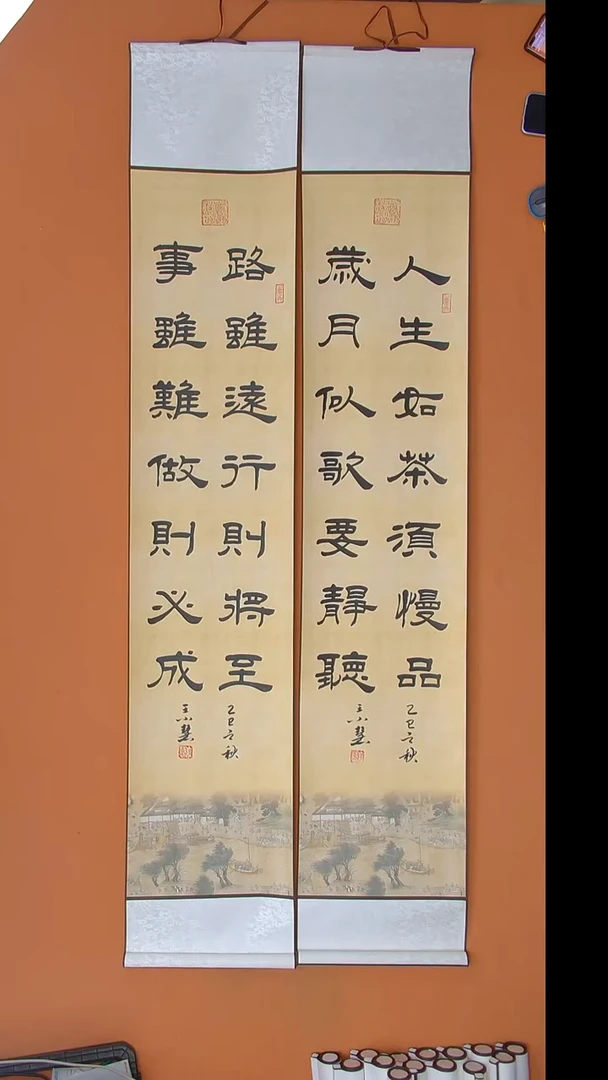 人生如茶須慢品
歲月似歌要靜聽
乙巳之秋
王小慧
路雖遠行則將至
事雖難做則必成
乙巳之秋
王小慧